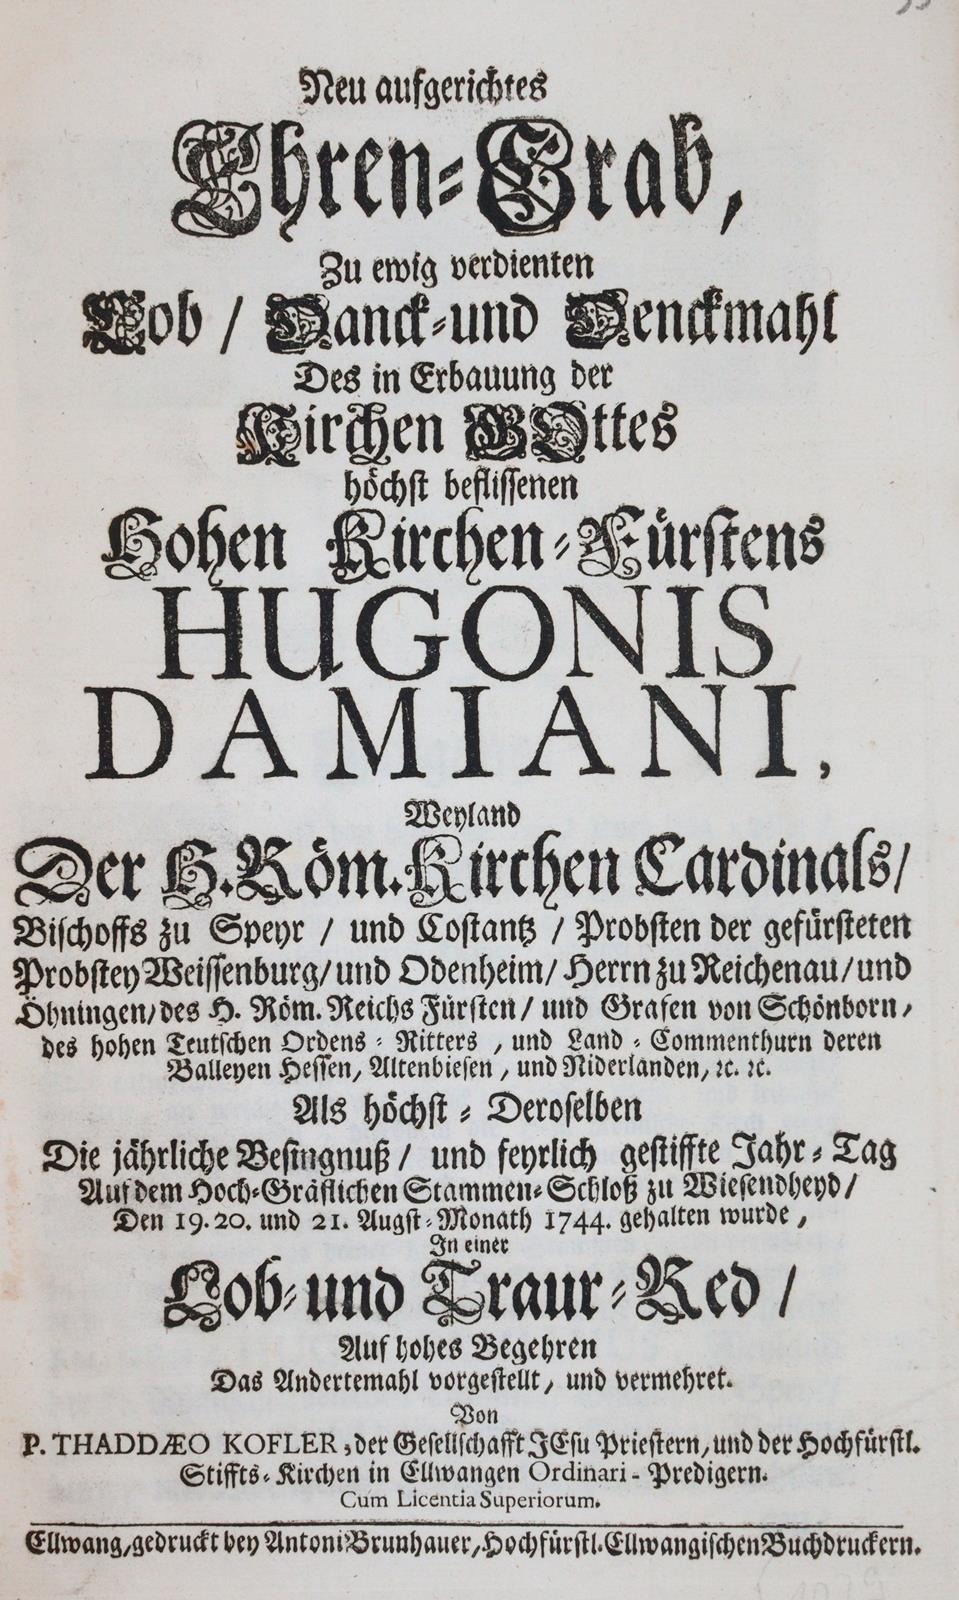 Neu aufgerichtes
Ehren-Grab,
Zu ewig verdienten
Lob / Danck-und Denckmahl
Des in Erbauung der
Kirchen GOttes
höchst beflissenen
Hohen Kirchen-Fürstens
HUGONIS
DAMIANI,
Weyland
Der H. Röm. Kirchen Cardinals/
Bischoffs zu Speyr / und Costantz / Probsten der gefürsteten
Probstey Weissenburg/und Odenheim/ Herrn zu Reichenau/und
Öhningen/des H. Röm. Reichs Fürsten/ und Grafen von Schönborn,
des hohen Teutschen Ordens-Ritters, und Land-Commenthurn deren
Balleyen Hessen, Altenbiesen, und Niderlanden, ꝛc. ꝛc.
Als höchst-Deroselben
Die jährliche Besingnuß/ und feyrlich gestiffte Jahr-Tag
Auf dem Hoch-Gräflichen Stammen-Schloß zu Wiesendheyd/
Den 19. 20. und 21. Augst-Monath 1744. gehalten wurde,
In einer
Lob-und Traur-Red /
Auf hohes Begehren
Das Andertemahl vorgestellt, und vermehret.
Von
P. THADDÆO KOFLER, der Gesellschafft JEsu Priestern, und der Hochfürstl.
Stiffts-Kirchen in Ellwangen Ordinari-Predigern.
Cum Licentia Superiorum.
Ellwang, gedruckt bey Antoni Brunhauer, Hochfürstl. Ellwangischen Buchdruckern.